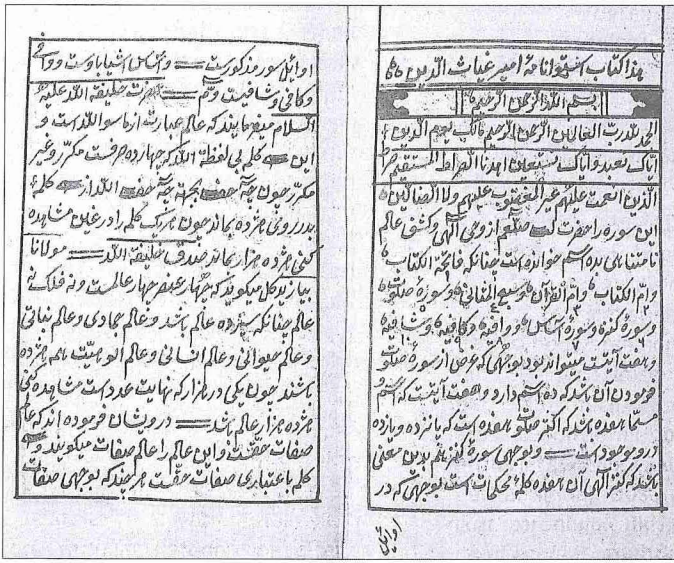 هذا کتاب استوانامهٔ امیر غیاث الدین
بسم الله الرحمن الرحیم
الحمد لله رب العالمین الرحمن الرحیم مالک یوم الدین
ایاک نعبد و ایاک نستعین اهدنا الصراط المستقیم صراط
الذین انعمت علیهم غیر المغضوب علیهم ولا الضالین
این سوره را حضرت صلعم از وحی آلهی و کشف عالم
نامتناهی بده اسم خوانده است چنانکه فاتحة الکتاب
و ام الکتاب و ام القرآن و سبع المثانی و سورهٔ صلوت
و سورهٔ کنز و سورهٔ اساس و وافیه و کافیه و شافیه
و هفت آیتست میتواند بود بوجهی که غرض از سورهٔ صلوت
فرمودن آن باشد که ده اسم دارد و هفت آیتست که اسم و
مسما هفده باشد که اکثر صلوت هفده است که پانزده و یازده
درو موجود است و بوجهی سورهٔ کنز هم بدین معنی
باشد که کنز آلهی آن هفده کلمهٔ محکمات است بوجهی که در
اوایل
اوایل سور مذکورست و اساس اشیا باوست و وافی
و کافی و شافیست و تم حضرت خلیفة الله علیه
السلام میفرمایند که عالم عبارت از ماسوا الله است و
این کلم بی لفظة الله که چهارده حرفست مکرر و غیر
مکرر چون
بدر رود هژده بماند چون هر یک کلمه را در عین مشاهده
کنی هژده هزار بماند صدق خلیفة الله مولانا
بیازید کل میکویند که چهار عنصر چهار عالمست و نه فلک نه
عالم چنانکه سیزده عالم باشد و عالم جمادی و عالم نباتی
و عالم حیوانی و عالم انسانی و عالم الوهیت هم هژده
باشند چون یکی در هزار که نهایت عدد است مشاهده کنی
هژده هزار عالم باشد درویشان فرموده اند که عالم
صفات حقست و این عالم را عالم صفات میکویند و
کلم باعتباری صفات حقست هر چند که بوجهی صفات